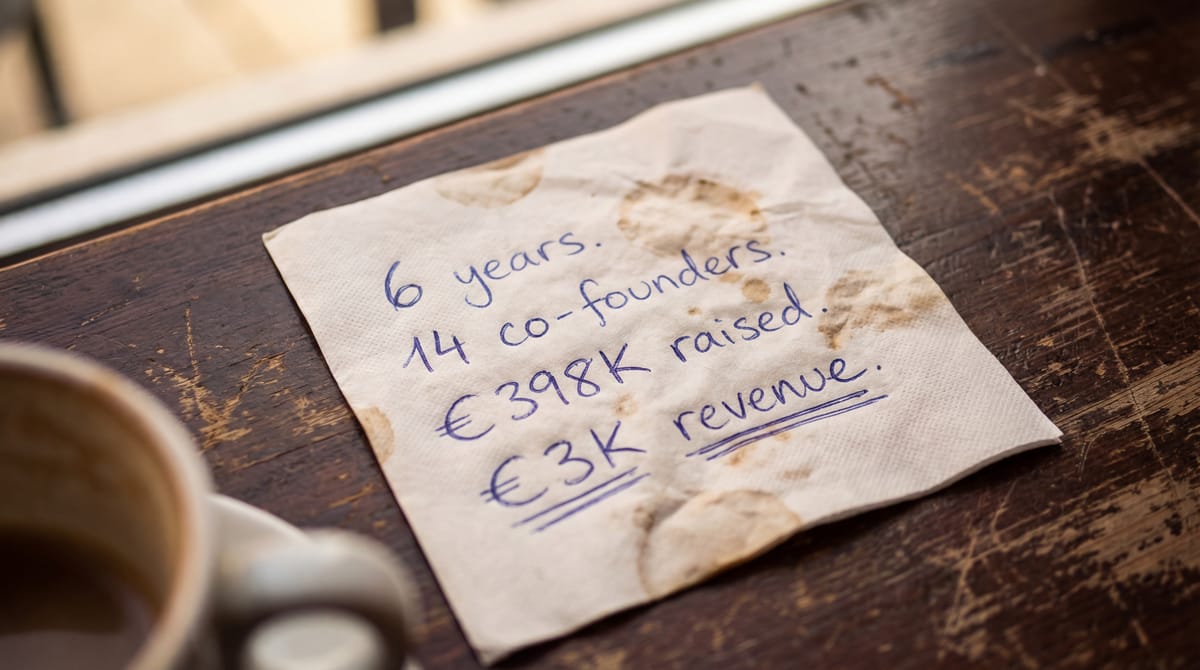 6 years.
14 co-founders.
€398K raised.
€3K revenue.